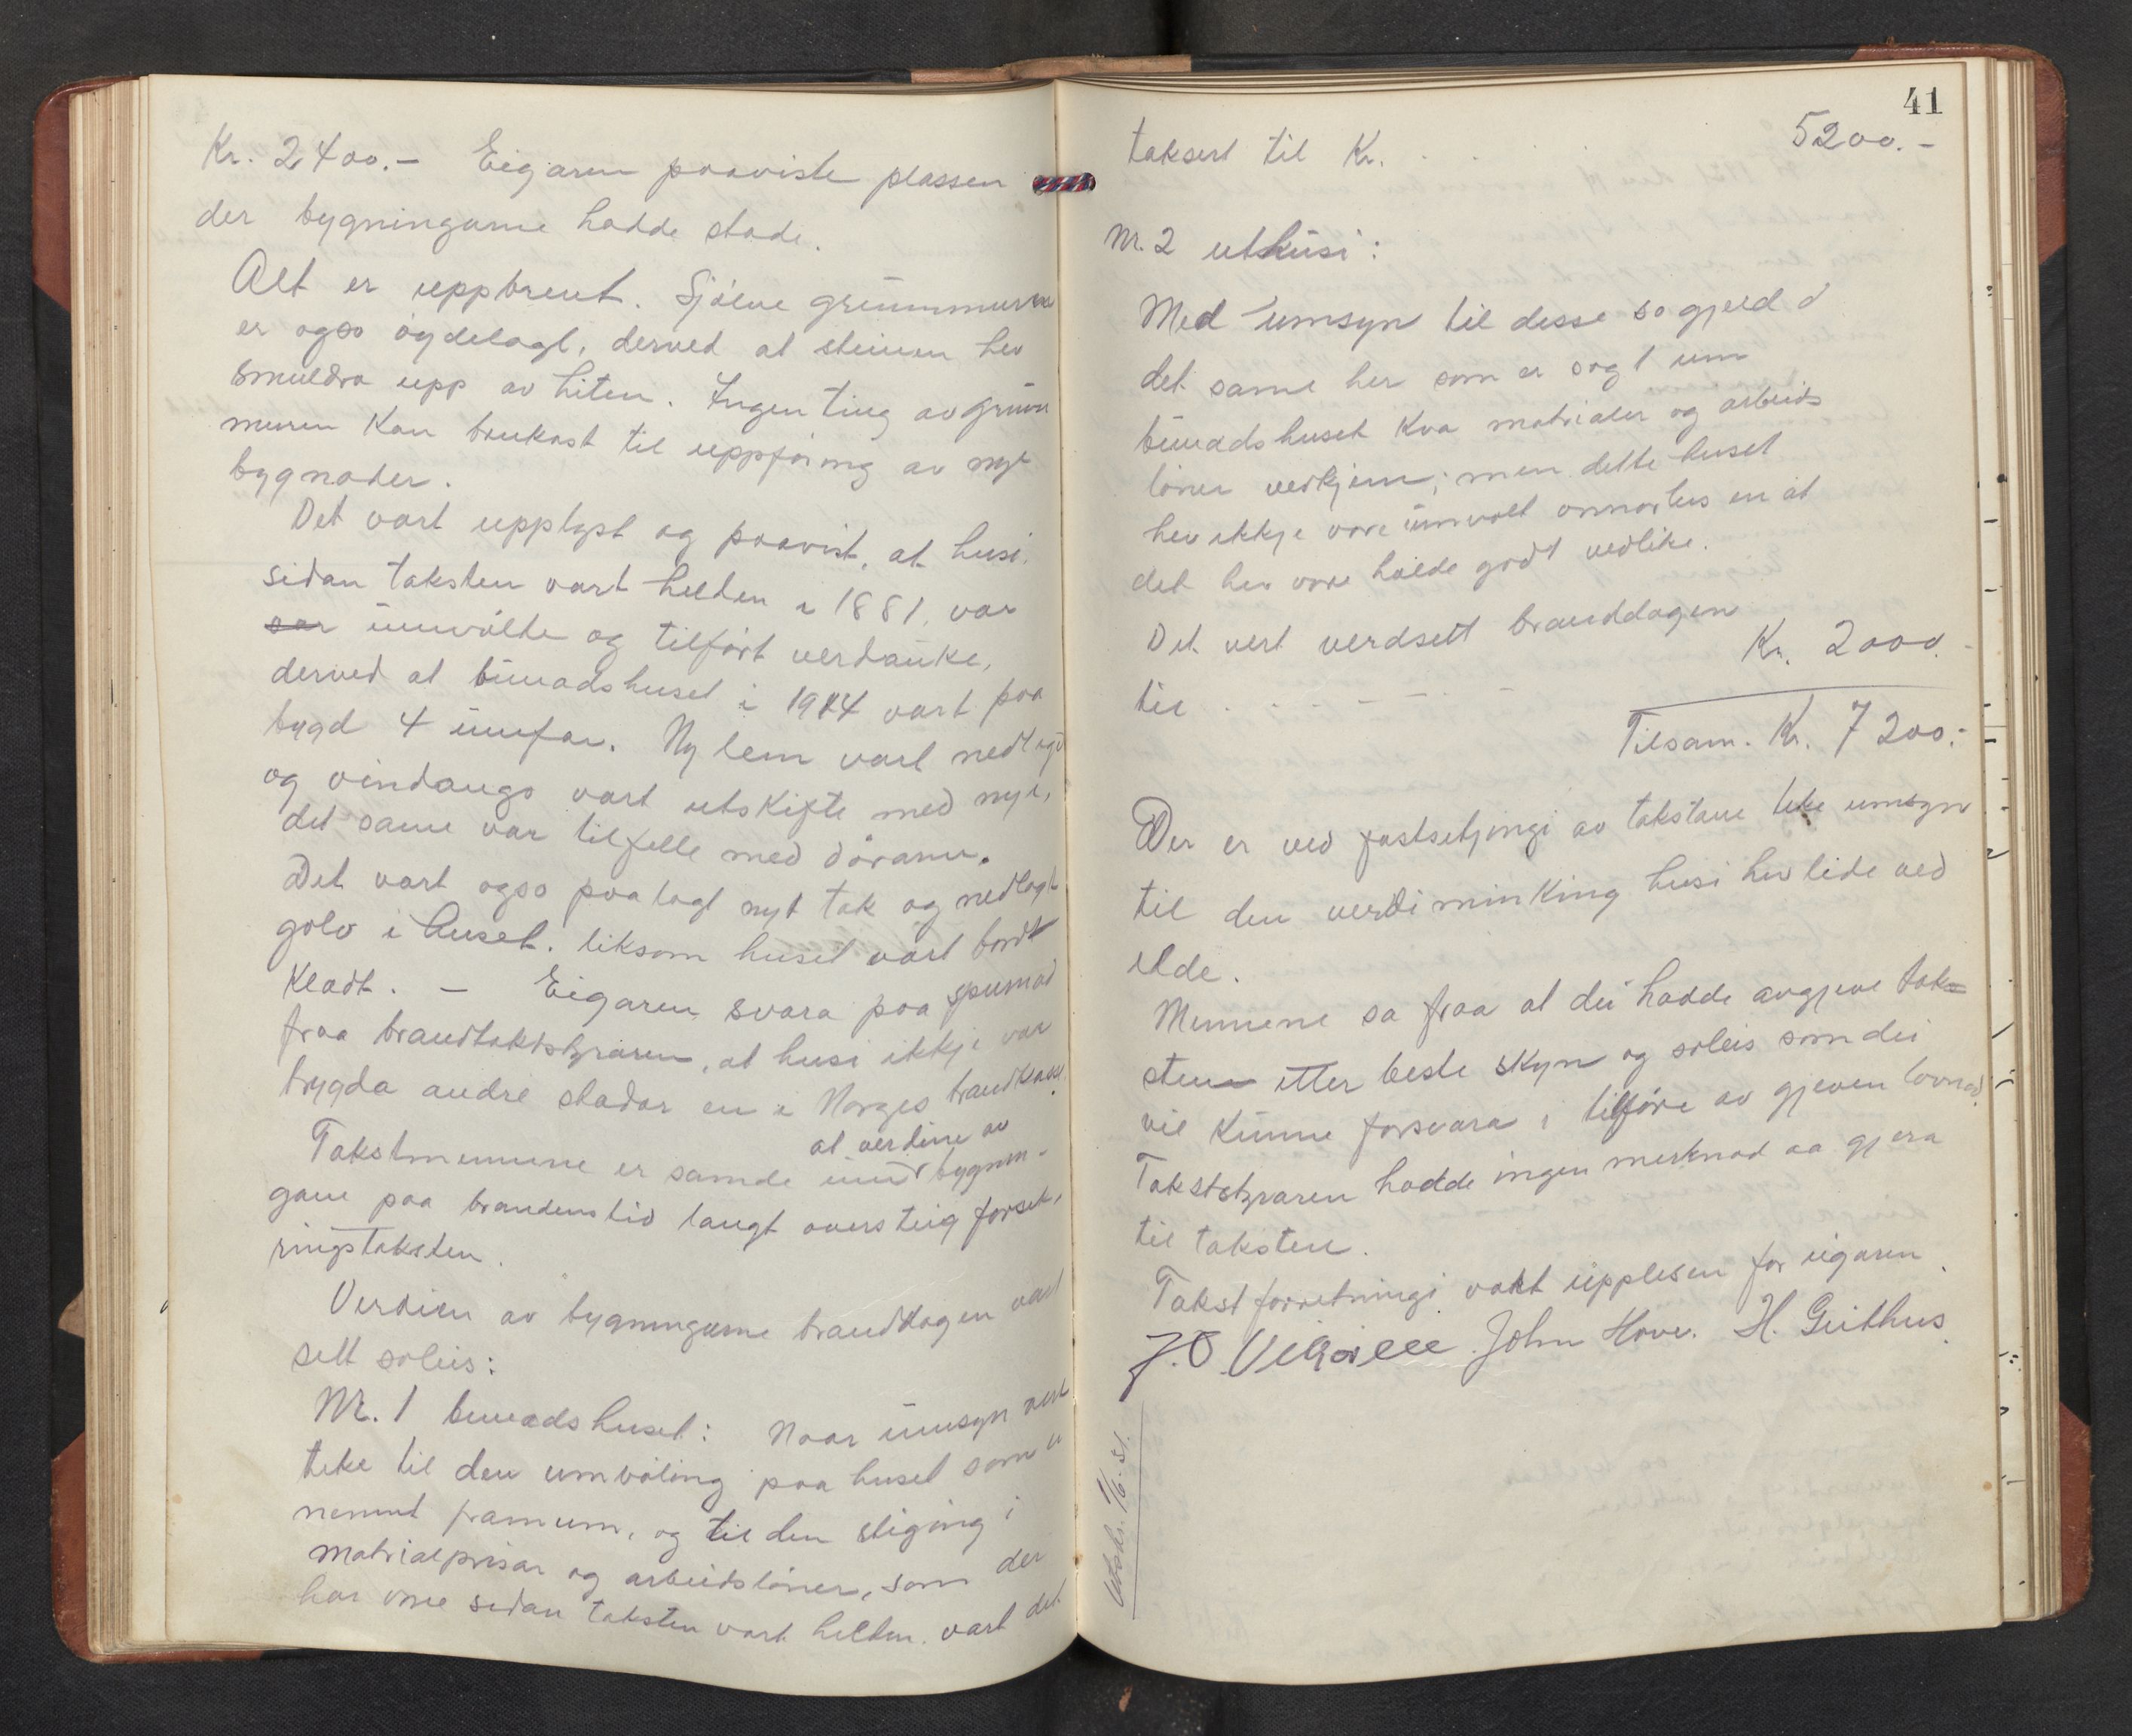 Kr. 2400.- Eigaren paaviste plassen
der bygningarne hadde stade.
Alt er uppbrent. Sjølve grunnmurne
er ogso øydelagt, derved at steinen hev
smuldra upp av hiten. Ingen ting av grunn
muren kan brukast til uppføring av nye
bygnader.
Det vart upplyst og paavist, at husi,
sidan taksten vart helden i 1881, var
umvølte og tilført verdauke,
derved at bunadshuset i 1914 vart paa
bygd 4 umfar. Ny lem vart nedlagd
og vindaugo vart utskifte med nye,
det same var tilfelle med dørarne.
Det vart ogso paalagt nyt tak og nedlagt
golv i huset. liksom huset vart bordt
kledt. - Eigaren svara paa spurnad
fraa brandtakststyraren, at husi ikkje var
trygda andre stadar en i Norges brandkasse.
Takstmennene er samde um at verdine av bygnin-
gane paa brandens tid langt oversteig forsik-
ringstaksten.
Verdien av bygningarne branddagen vart
sett soleis:
Nr. 1 bunadshuset: Naar umsyn vert
teke til den umvøling paa huset som er
nemnt framum, og til den stiging i
matrialprisar og arbeidsløner, som der
har vore sidan taksten vart helden, vart det
41
taksert til Kr. . . . . 5200.-
Nr. 2 uthusi:
Med umsyn til desse so gjeld d
det same her som er sagt um
bunadshuset kva matrialer og arbeids
løner vedkjem; men dette huset
hev ikkje vore umvølt annarleis en at
det hev vore halde godt vedlike.
Det vert verdsett branddagen
til . . . . Kr. 2000.-
Tilsam. Kr. 7200.-
Der er ved fastsetjingi av takstane teke umsyn
til den verdiminking husi hev lide ved
elde.
Mennene sa fraa at dei hadde avgjeve tak=
sten etter beste skyn og soleis som dei
vil kunne forsvara i tilføre av gjeven lovnad.
Takststyraren hadde ingen merknad aa gjera
til taksten.
Takstforretningi vart upplesen for eigaren.
J. O. Vikøren John Hove. H. Geithus.
Utskr. 1/6.31.